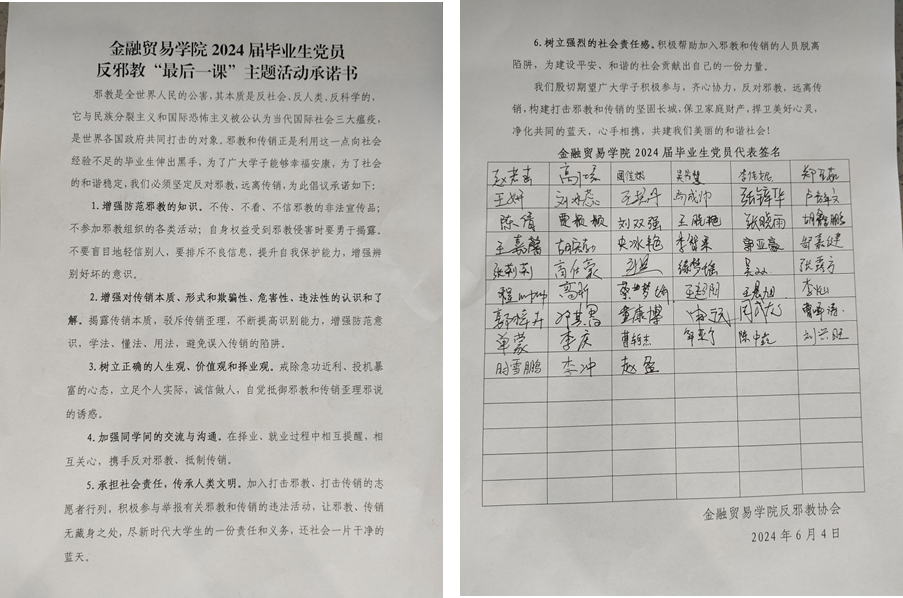 金融贸易学院 2024 届毕业生党员
反邪教“最后一课”主题活动承诺书
邪教是全世界人民的公害，其本质是反社会、反人类、反科学的，
它与民族分裂主义和国际恐怖主义被公认为当代国际社会三大瘟疫，
是世界各国政府共同打击的对象。邪教和传销正是利用这一点向社会
经验不足的毕业生伸出黑手，为了广大学子能够幸福安康，为了社会
的和谐稳定，我们必须坚定反对邪教，远离传销，为此倡议承诺如下：
1. 增强防范邪教的知识。不传、不看、不信邪教的非法宣传品；
不参加邪教组织的各类活动；自身权益受到邪教侵害时要勇于揭露。
不要盲目地轻信别人，要排斥不良信息，提升自我保护能力，增强辨
别好坏的意识。
2. 增强对传销本质、形式和欺骗性、危害性、违法性的认识和了
解。揭露传销本质，驳斥传销歪理，不断提高识别能力，增强防范意
识，学法、懂法、用法，避免误入传销的陷阱。
3. 树立正确的人生观、价值观和择业观。戒除急功近利、投机暴
富的心态，立足个人实际，诚信做人，自觉抵御邪教和传销歪理邪说
的诱惑。
4. 加强同学间的交流与沟通。在择业、就业过程中相互提醒，相
互关心，携手反对邪教、抵制传销。
5. 承担社会责任，传承人类文明。加入打击邪教、打击传销的志
愿者行列，积极参与举报有关邪教和传销的违法活动，让邪教、传销
无藏身之处，尽新时代大学生的一份责任和义务，还社会一片干净的
蓝天。
6. 树立强烈的社会责任感。积极帮助加入邪教和传销的人员脱离
陷阱，为建设平安、和谐的社会贡献出自己的一份力量。
我们殷切期望广大学子积极参与，齐心协力，反对邪教，远离传
销，构建打击邪教和传销的坚固长城，保卫家庭财产，捍卫美好心灵，
净化共同的蓝天，心手相携，共建我们美丽的和谐社会！
金融贸易学院 2024 届毕业生党员代表签名
王妍 张锦华
陈倩 刘双强 王晓艳 张晓雨 胡鑫鹏
王嘉馨 李梦来
张莉莉 高仕豪 吴双
李灿
单蒙 李庆 刘兴旺
时雪鹏 李冲 赵盈
金融贸易学院反邪教协会
2024 年 6 月 4 日